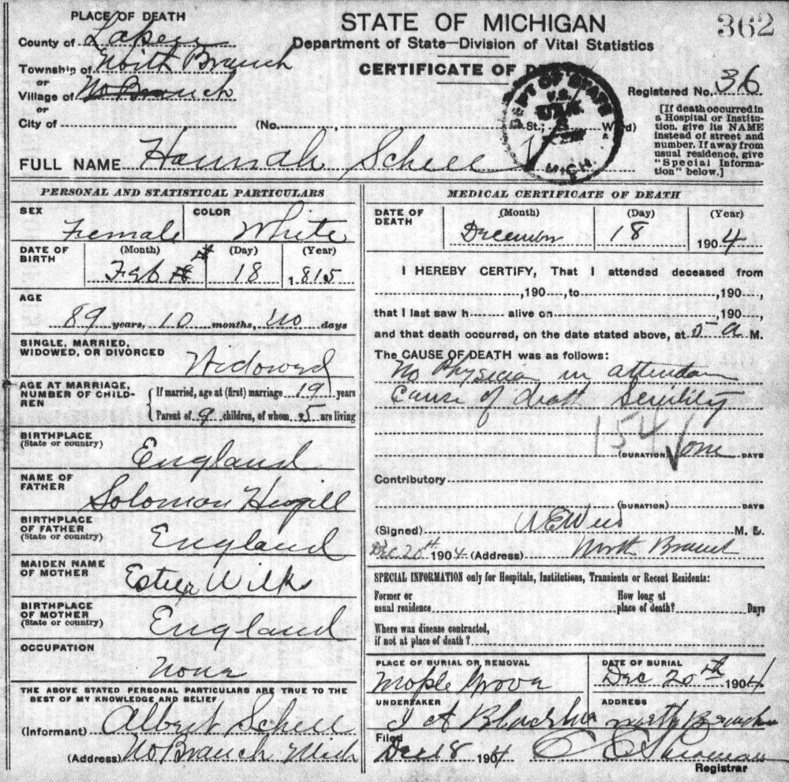 PLACE OF DEATH
County of Lapeer
Township of North Branch
or
Village of No Branch
or
City of (No. St.; Ward)
STATE OF MICHIGAN
Department of State—Division of Vital Statistics
CERTIFICATE OF
362
Registered No. 36
[If death occurred in a Hospital or Institution, give its NAME instead of street and number. If away from usual residence, give "Special Information" below.]
DEPT OF STATE
MICH.
FULL NAME Hannah Schell
PERSONAL AND STATISTICAL PARTICULARS
SEX Female COLOR White
DATE OF BIRTH (Month) Feb (Day) 18 (Year) 1815
AGE
89 years, 10 months, no days
SINGLE, MARRIED, WIDOWED, OR DIVORCED Widowed
AGE AT MARRIAGE, NUMBER OF CHILDREN
If married, age at (first) marriage 19 years
Parent of 9 children, of whom 5 are living
BIRTHPLACE (State or country) England
NAME OF FATHER Solomon
BIRTHPLACE OF FATHER (State or country) England
MAIDEN NAME OF MOTHER Esther Wilks
BIRTHPLACE OF MOTHER (State or country) England
OCCUPATION None
THE ABOVE STATED PERSONAL PARTICULARS ARE TRUE TO THE BEST OF MY KNOWLEDGE AND BELIEF
(Informant) Albert Schell
(Address) No Branch Mich
MEDICAL CERTIFICATE OF DEATH
DATE OF DEATH (Month) December (Day) 18 (Year) 1904
I HEREBY CERTIFY, That I attended deceased from
, 190 , to , 190 ,
that I last saw h alive on , 190 ,
and that death occurred, on the date stated above, at 5 a M.
The CAUSE OF DEATH was as follows:
No Physician in attendan
Cause of death Senility
154
(DURATION) one DAYS
Contributory
(DURATION) DAYS
(Signed) M. D.
Dec 20th 1904 (Address) North Branch
SPECIAL INFORMATION only for Hospitals, Institutions, Transients or Recent Residents:
Former or usual residence How long at place of death? Days
Where was disease contracted, if not at place of death?
PLACE OF BURIAL OR REMOVAL Maple Grove
DATE OF BURIAL Dec 20th 1904
UNDERTAKER J A
ADDRESS North Branch
Filed
Dec 18 1904
Registrar